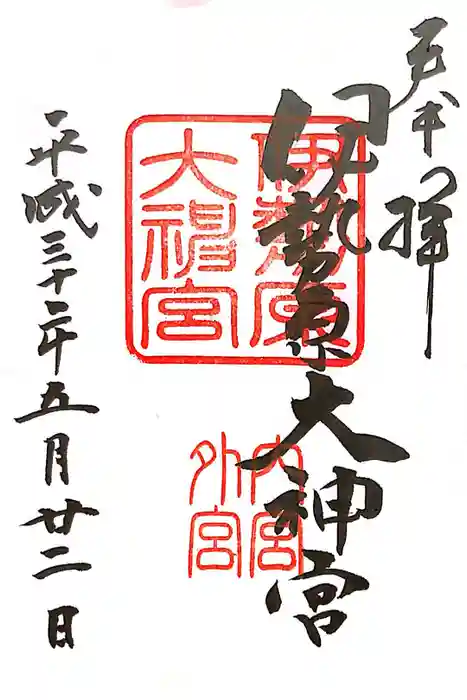 奉拝
伊勢原大神宮
平成三十年五月廿二日
伊勢原
大神宮
内宮
外宮